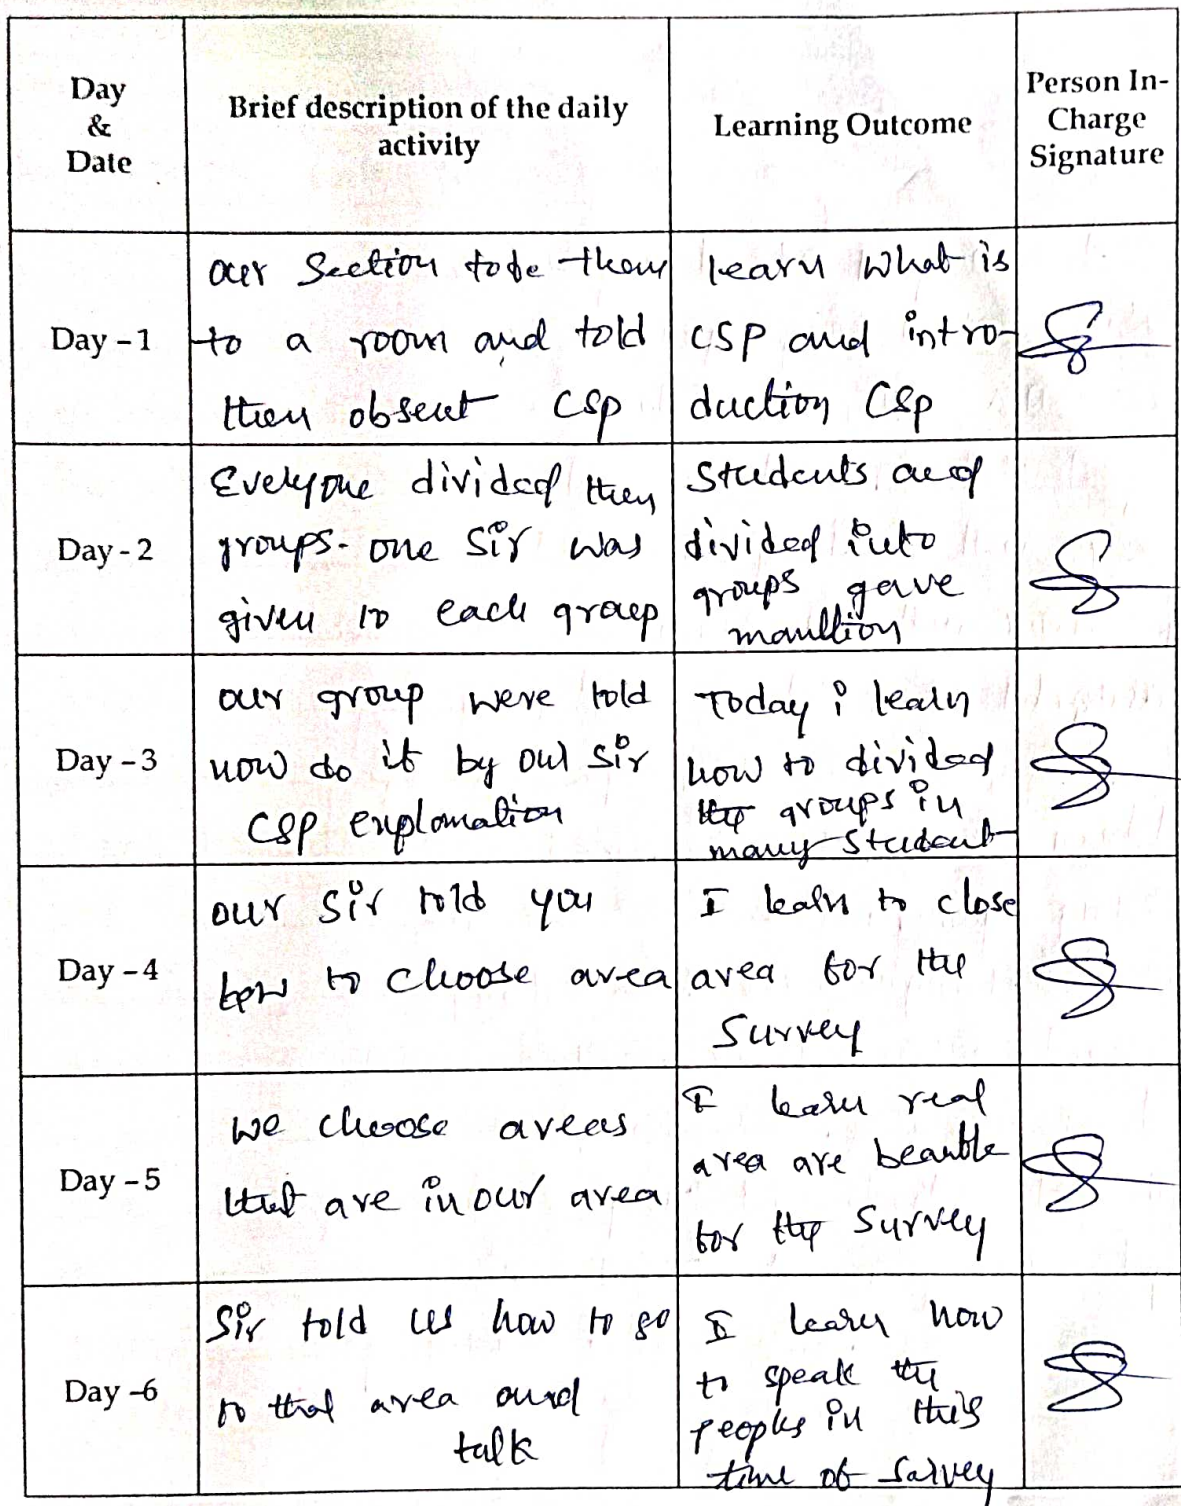 Day
&
Date
Brief description of the daily
activity
Learning Outcome
Person In-
Charge
Signature
Day - 1
our Section them
to a room and told
then CSP
learn what is
CSP and intro-
duction CSP
Day - 2
Everyone divided then
groups. one Sir was
given to each group
Students and
divided into
groups gave
Day - 3
our group were told
now do it by our Sir
CSP explomation
Today i learn
how to divided
the groups in
many Student
Day - 4
our Sir told you
how to choose area
I learn to close
area for the
Survey
Day - 5
we choose areas
that are in our area
I learn real
area are
for the Survey
Day -6
Sir told us how to go
to that area and
talk
I learn how
to speak the
peoples in this
time of Survey